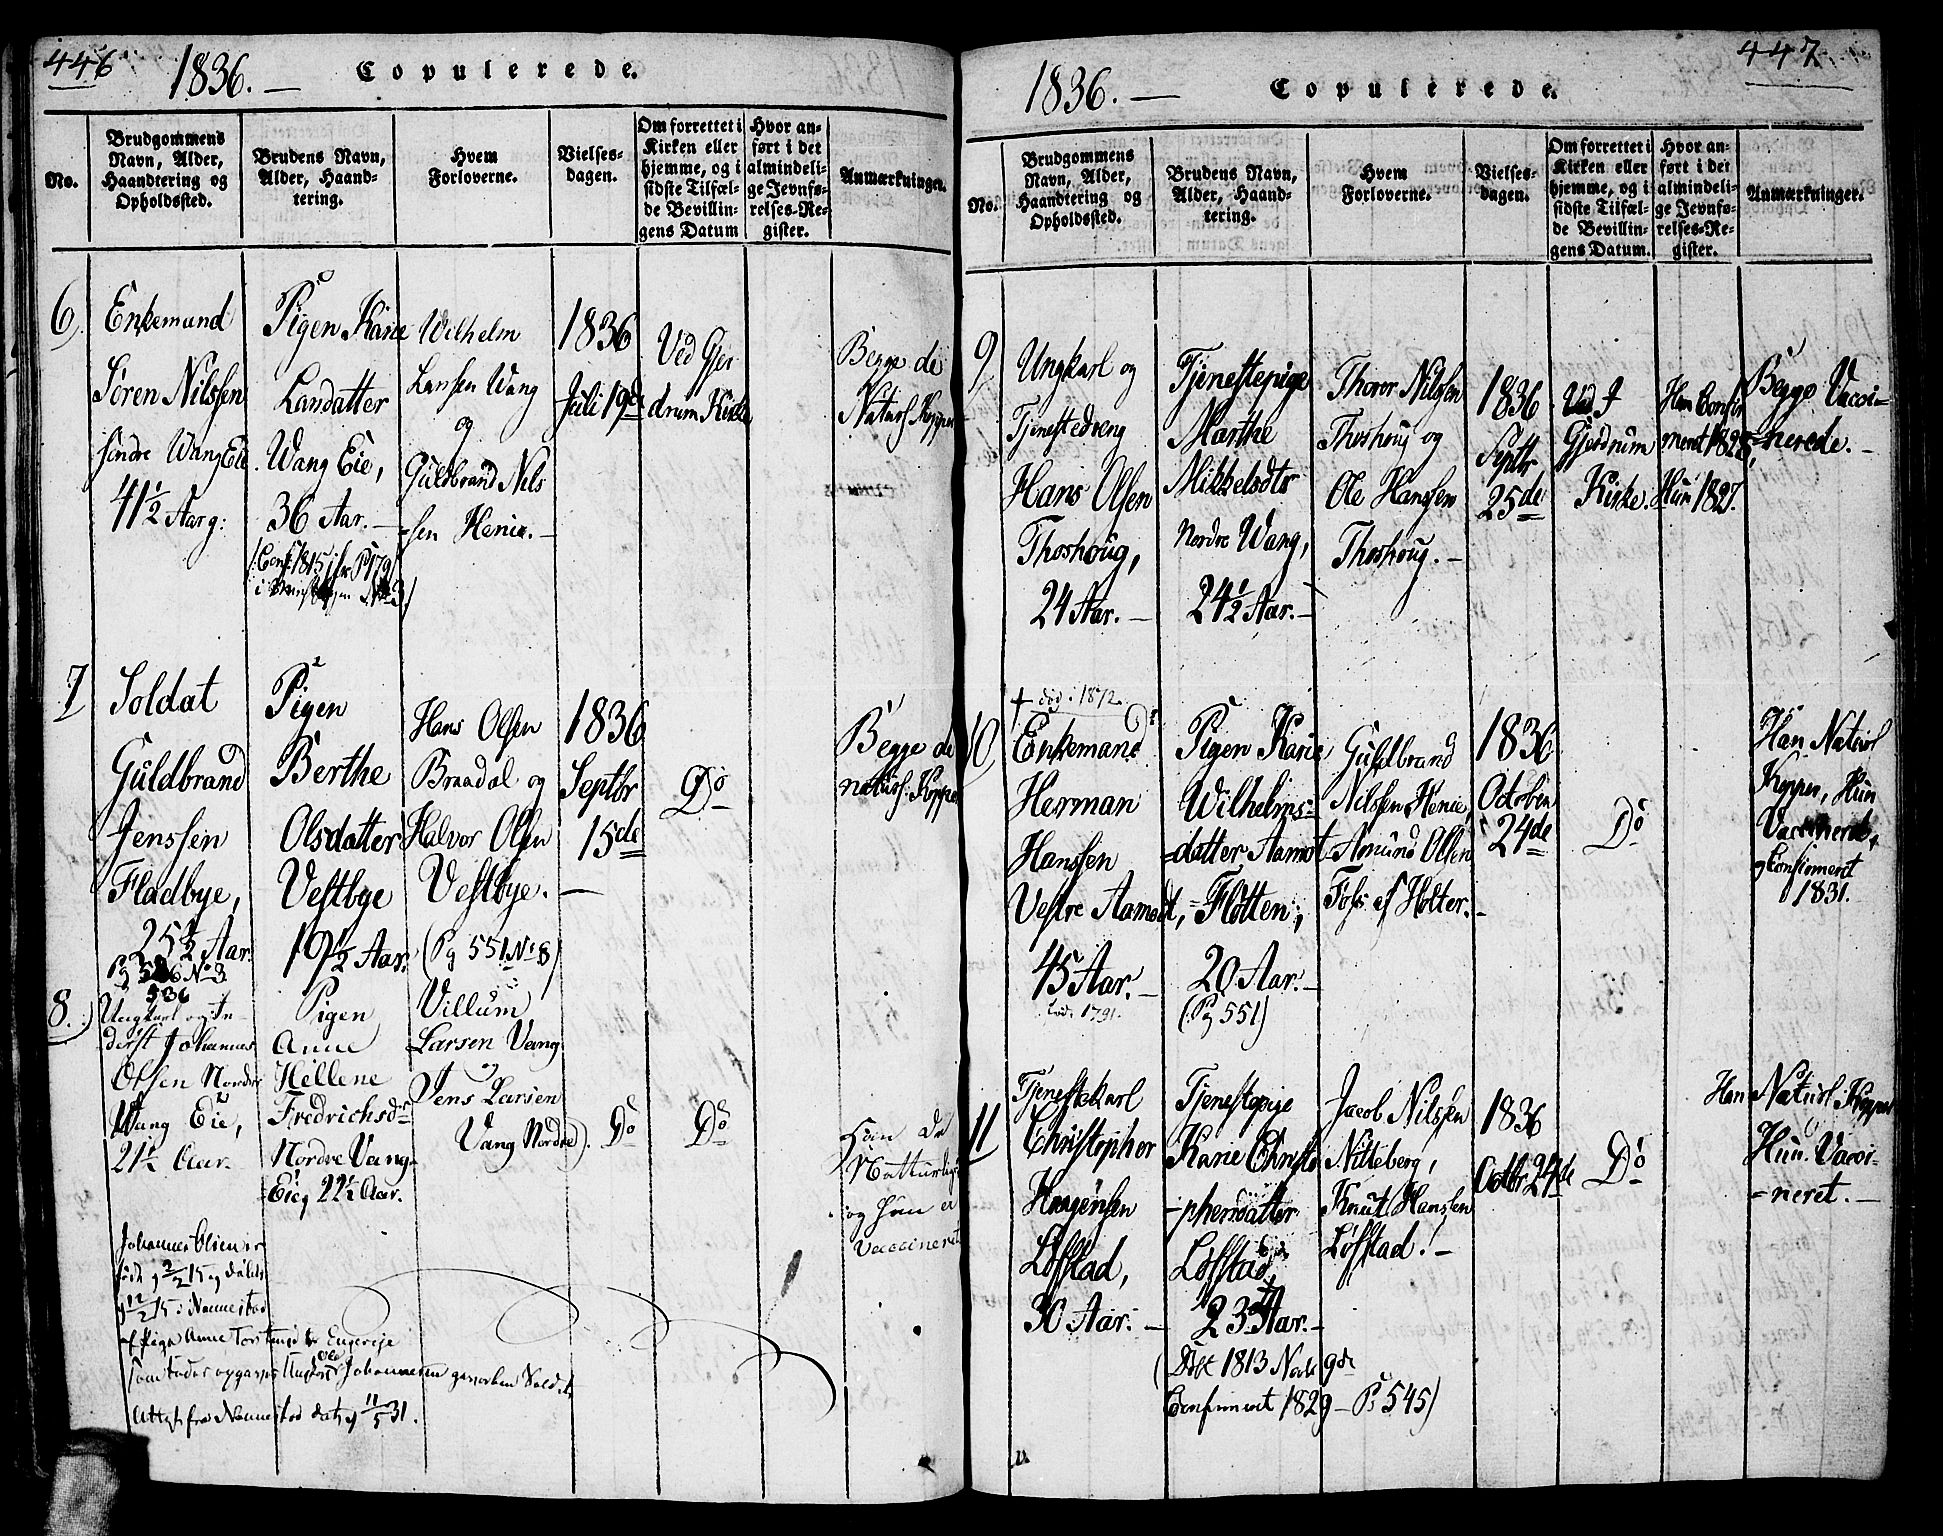 446
1836. —
Copulerede.
No.
Brudgommens
Navn, Alder,
Haandtering og
Opholdssted.
Brudens Navn,
Alder, Haand-
tering.
Hvem
Forloverne.
Vielses-
dagen.
Om forrettet i
Kirken eller
hjemme, og i
sidste Tilfæl-
de Bevillin-
gens Datum
Hvor an-
ført i det
almindeli-
ge Jevnfø-
relses-Re-
gister.
Anmærkninger.
6)
Enkemand
Sören Nilssen
søndre Wang Eie
41½ Aar g:
Pigen Karie
Larsdatter
Wang Eie,
36 Aar. —
Wilhelm
Larssen Wang
og
Guldbrand Nils
=sen Henie. —
1836
Juli 19de
Ved Gjer
drum Kirke
Begge de
Naturl. Kopper
7
Soldat
Guldbrand
Jenssen
Fladbye,
25½ Aar.
536
Pigen
Berthe
Olsdatter
Vestbye
19½ Aar.
Hans Olsen
Braadal og
Halvor Olsen
Vestbye. —
(Pg 551 No 8)
1836
Septbr
15de
Do
Begge de
naturl: Kopper
8.)
Ungkarl og In-
derst Johannes
Olsen Nordre
Wang Eie,
21½ Aar.
Pigen
Anne
Hellene
Fredrichsdr
Nordre Vang-
=Eie, 22½ Aar.
Villum
Larsen Vang
og
Jens Larsen
Vang Nordre).
Do
Do
Han de
Natturlige
og Hun er
Vaccineret
Johannes Olsen er
født 9/2 15 og døbt
12/2 15 i Nannestad
af Pige Anne
som fader opgaves Ungkarl Ole Johannesen Soldat
Attest fra Nannestad dat. 11/5 31.
447
1836. —
Copulerede.
No.
Brudgommens
Navn, Alder,
Haandtering og
Opholdssted.
Brudens Navn,
Alder, Haand-
tering.
Hvem
Forloverne.
Vielses-
dagen.
Om forrettet i
Kirken eller
hjemme, og i
sidste Tilfæl-
de Bevillin-
gens Datum.
Hvor an-
ført i det
almindeli-
ge Jevnfø-
relses-Re-
gister.
Anmærkninger.
9
Ungkarl og
Tjenestedreng
Hans Olsen
Thoshoug,
24 Aar. —
Tjenestepige
Marthe
Mikkelsdtr
Nordre Wang,
24½ Aar. —
Thorer Nilsen
Thoshoug og
Ole Hanssen
Thoshoug. —
1836
Septbr
25de
Ved
Gjerdrum
Kirke.
Han Confir
meret 1828,
Hun 1827.
Begge Vacci-
=nerede. —
10
† død i 1872.
Enkemand
Herman
Hanssen
Vestre Aamodt,
45 Aar. —
född 1791.
Pigen Karie
Wilhelms=
=datter Aamot
=Fløtten,
20 Aar. —
(Pg 551)
Guldbrand
Nilssen Henie,
Amund Olsen
Foss af Holter. —
1836
October
24de
Do
Han Naturl
Kopper, Hun
Vaccinered,
og Confirmeret
1831.
11
Tjenestekarl
Christopher
Haagensen
Løfstad,
30 Aar. —
Tjenestepige
Karie Christo
=phersdatter
Løfstad,
23 Aar. —
(Født 1813 Novbr 9de
Confirmeret 1829 — Pg 545)
Jacob Nilssen
Nitteberg,
Knut Hanssen
Løfstad. —
1836
Octbr 24de
Do
Han Naturl. Kopper
Hun Vacci-
=neret. —